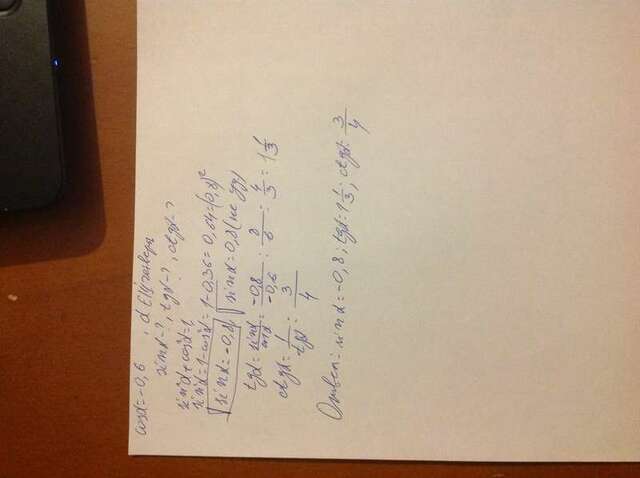 cosα=-0,6, α∈ III четверти
sinα-?, tgα-?, ctgα-?
sin²α+cos²α=1
sin²α=1-cos²α=1-0,36=0,64=(0,8)²
sinα=-0,8 sinα=0,8 (не уд)
tgα=sinα/cosα=-0,8/-0,6=8/6=4/3=1 1/3
ctgα=1/tgα=3/4
Ответ: sinα=-0,8; tgα=1 1/3; ctgα=3/4